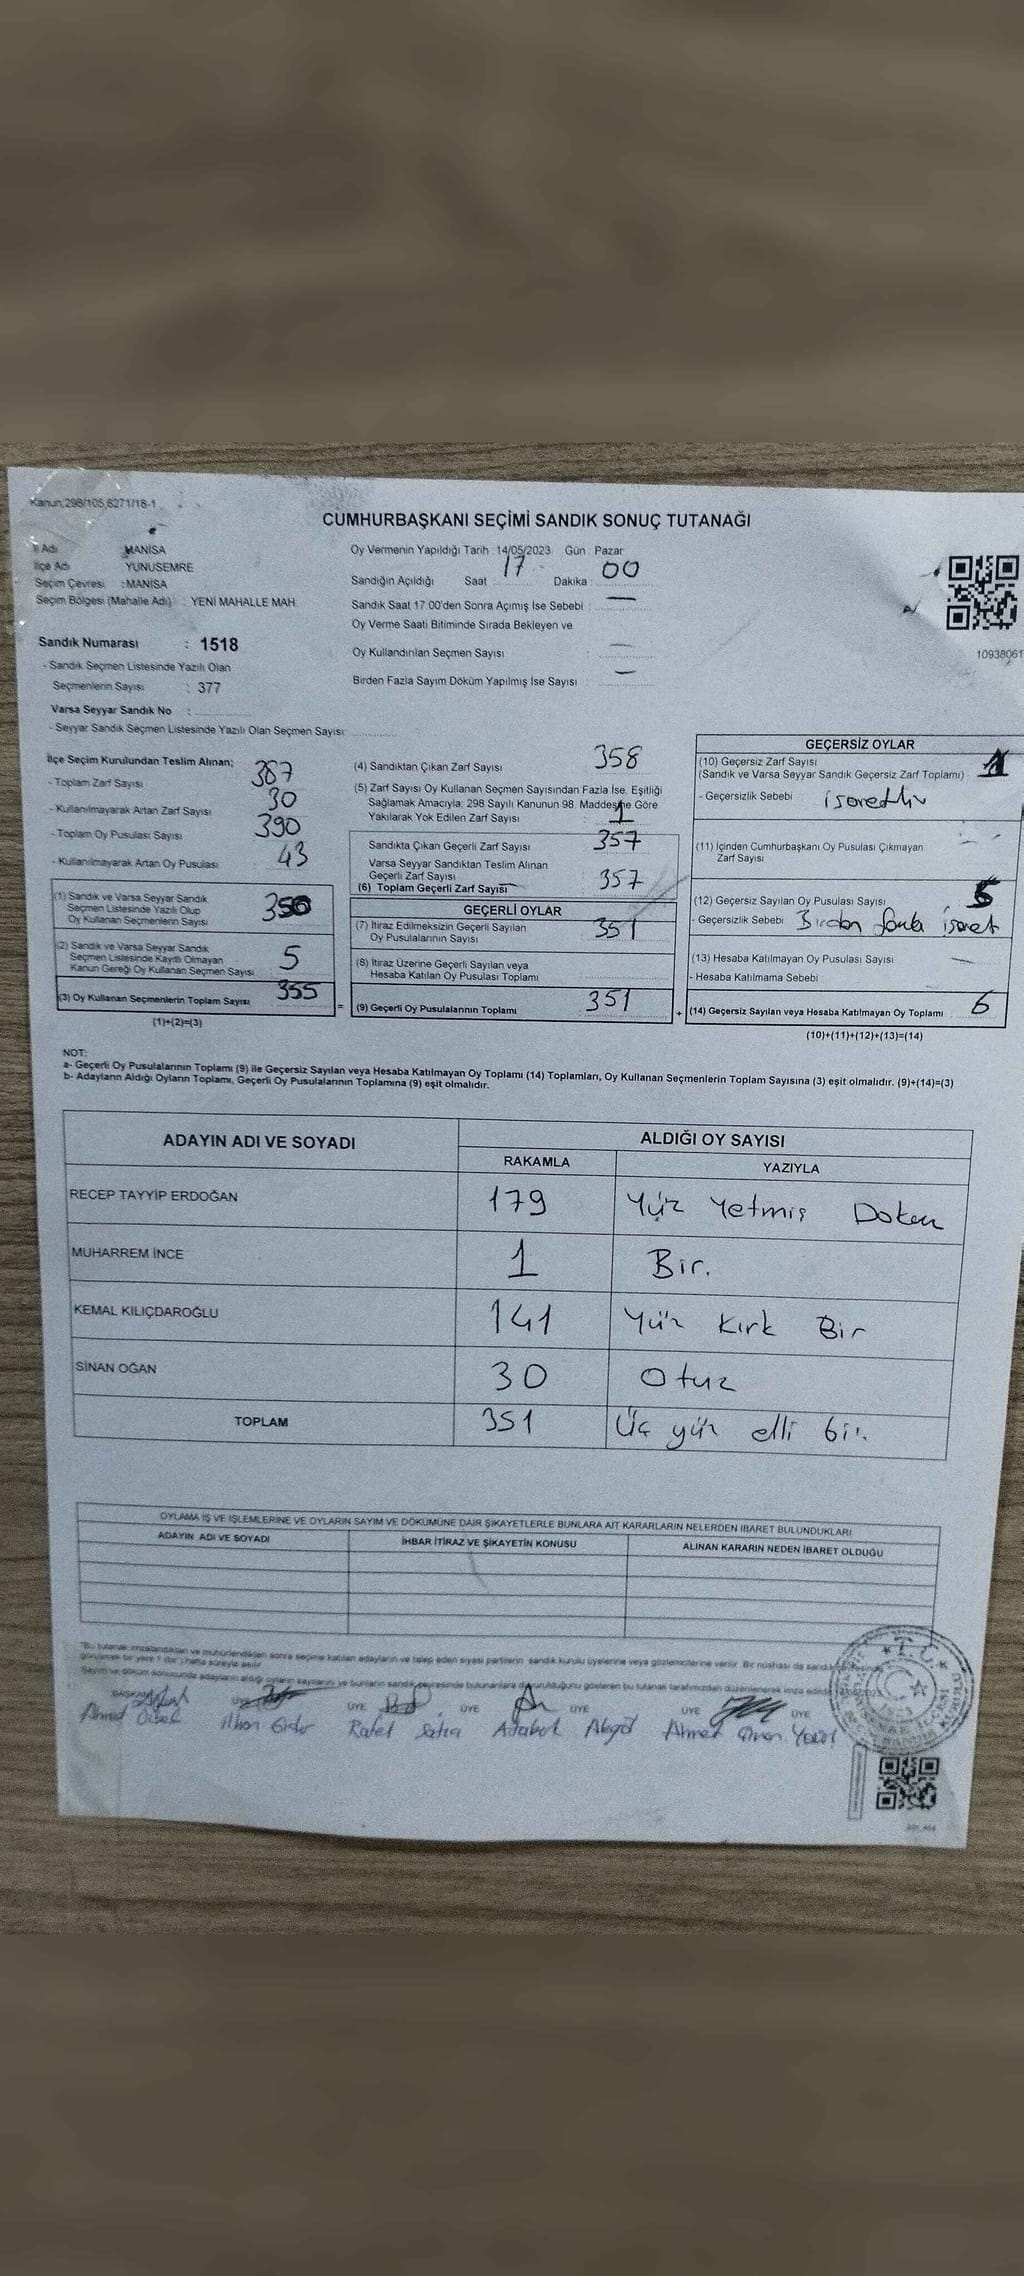 Kanun,298/105,6271/18-1
CUMHURBAŞKANI SEÇİMİ SANDIK SONUÇ TUTANAĞI
İl Adı MANİSA
İlçe Adı YUNUSEMRE
Seçim Çevresi : MANİSA
Seçim Bölgesi (Mahalle Adı) : YENİ MAHALLE MAH.
Sandık Numarası : 1518
- Sandık Seçmen Listesinde Yazılı Olan
Seçmenlerin Sayısı : 377
Varsa Seyyar Sandık No :
- Seyyar Sandık Seçmen Listesinde Yazılı Olan Seçmen Sayısı:
Oy Vermenin Yapıldığı Tarih : 14/05/2023 Gün : Pazar
Sandığın Açıldığı Saat : 17 Dakika : 00
Sandık Saat 17:00'den Sonra Açımış İse Sebebi : —
Oy Verme Saati Bitiminde Sırada Bekleyen ve
Oy Kullandırılan Seçmen Sayısı : —
Birden Fazla Sayım Döküm Yapılmış İse Sayısı : —
10938061
İlçe Seçim Kurulundan Teslim Alınan;
- Toplam Zarf Sayısı 387
- Kullanılmayarak Artan Zarf Sayısı 30
- Toplam Oy Pusulası Sayısı 390
- Kullanılmayarak Artan Oy Pusulası 43
(1) Sandık ve Varsa Seyyar Sandık
Seçmen Listesinde Yazılı Olup
Oy Kullanan Seçmenlerin Sayısı 350
(2) Sandık ve Varsa Seyyar Sandık
Seçmen Listesinde Kayıtlı Olmayan
Kanun Gereği Oy Kullanan Seçmen Sayısı 5
(3) Oy Kullanan Seçmenlerin Toplam Sayısı 355
(1)+(2)=(3)
(4) Sandıktan Çıkan Zarf Sayısı 358
(5) Zarf Sayısı Oy Kullanan Seçmen Sayısından Fazla İse, Eşitliği
Sağlamak Amacıyla; 298 Sayılı Kanunun 98. Maddesine Göre
Yakılarak Yok Edilen Zarf Sayısı : 1
Sandıkta Çıkan Geçerli Zarf Sayısı 357
Varsa Seyyar Sandıktan Teslim Alınan
Geçerli Zarf Sayısı
(6) Toplam Geçerli Zarf Sayısı 357
GEÇERLİ OYLAR
(7) İtiraz Edilmeksizin Geçerli Sayılan
Oy Pusulalarının Sayısı 351
(8) İtiraz Üzerine Geçerli Sayılan veya
Hesaba Katılan Oy Pusulası Toplamı
= (9) Geçerli Oy Pusulalarının Toplamı 351
GEÇERSİZ OYLAR
(10) Geçersiz Zarf Sayısı
(Sandık ve Varsa Seyyar Sandık Geçersiz Zarf Toplamı) : 1
- Geçersizlik Sebebi
(11) İçinden Cumhurbaşkanı Oy Pusulası Çıkmayan
Zarf Sayısı : —
(12) Geçersiz Sayılan Oy Pusulası Sayısı 5
- Geçersizlik Sebebi Birden fazla işaret
(13) Hesaba Katılmayan Oy Pusulası Sayısı —
- Hesaba Katılmama Sebebi
+ (14) Geçersiz Sayılan veya Hesaba Katılmayan Oy Toplamı 6
(10)+(11)+(12)+(13)=(14)
NOT:
a- Geçerli Oy Pusulalarının Toplamı (9) ile Geçersiz Sayılan veya Hesaba Katılmayan Oy Toplamı (14) Toplamları, Oy Kullanan Seçmenlerin Toplam Sayısına (3) eşit olmalıdır. (9)+(14)=(3)
b- Adayların Aldığı Oyların Toplamı, Geçerli Oy Pusulalarının Toplamına (9) eşit olmalıdır.
ADAYIN ADI VE SOYADI ALDIĞI OY SAYISI
RAKAMLA YAZIYLA
RECEP TAYYİP ERDOĞAN 179 Yüz Yetmiş Dokuz
MUHARREM İNCE 1 Bir.
KEMAL KILIÇDAROĞLU 141 Yüz Kırk Bir
SİNAN OĞAN 30 Otuz
TOPLAM 351 Üç yüz elli bir.
OYLAMA İŞ VE İŞLEMLERİNE VE OYLARIN SAYIM VE DÖKÜMÜNE DAİR ŞİKAYETLERLE BUNLARA AİT KARARLARIN NELERDEN İBARET BULUNDUKLARI
ADAYIN ADI VE SOYADI İHBAR İTİRAZ VE ŞİKAYETİN KONUSU ALINAN KARARIN NEDEN İBARET OLDUĞU
"Bu tutanak imzalandıktan ve mühürlendikten sonra seçime katılan adayların ve talep eden siyasi partilerin sandık kurulu üyelerine veya gözlemcilerine verilir. Bir nüshası da
görülmek bir yere 1 (bir) hafta süreyle asılır.
Sayım ve döküm sonucunda adayların aldığı oyların sayılarını ve bunların sandık çevresinde bulunanlara duyurulduğunu gösteren bu tutanak tarafımızdan düzenlenerek imza edildi.
BAŞKAN ÜYE ÜYE ÜYE ÜYE ÜYE ÜYE
Ahmed İlhan Rafet Ahmet